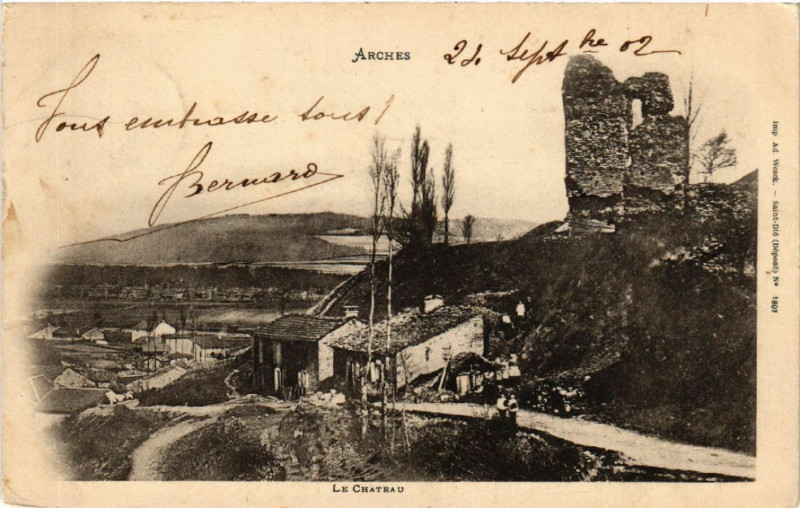 ARCHES
23 Sept bre 02
Vous embrasse tous !
Bernard
Imp Ad Weick. — Saint-Dié (Déposé) No 1897
LE CHATEAU